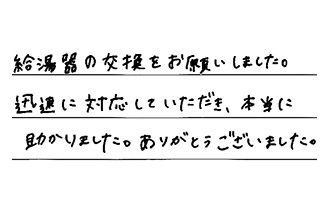 給湯器の交換をお願いしました。
迅速に対応していただき、本当に
助かりました。ありがとうございました。